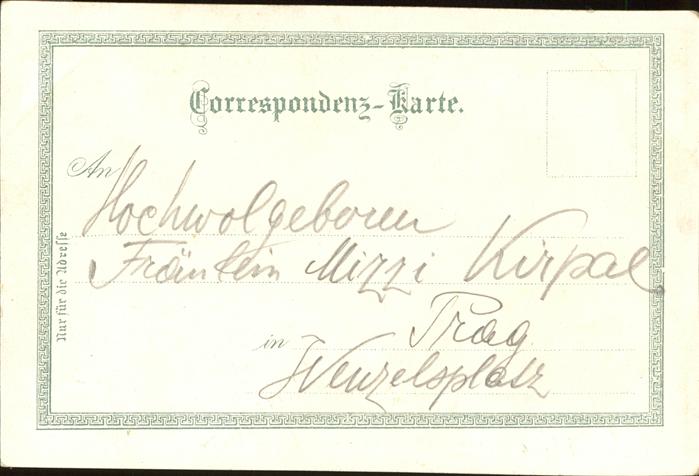 Correspondenz-Karte.
An
Hochwolgeboren
Fräulein Mizzi Kirpal
Prag
in
Wenzelsplatz
Nur für die Adresse